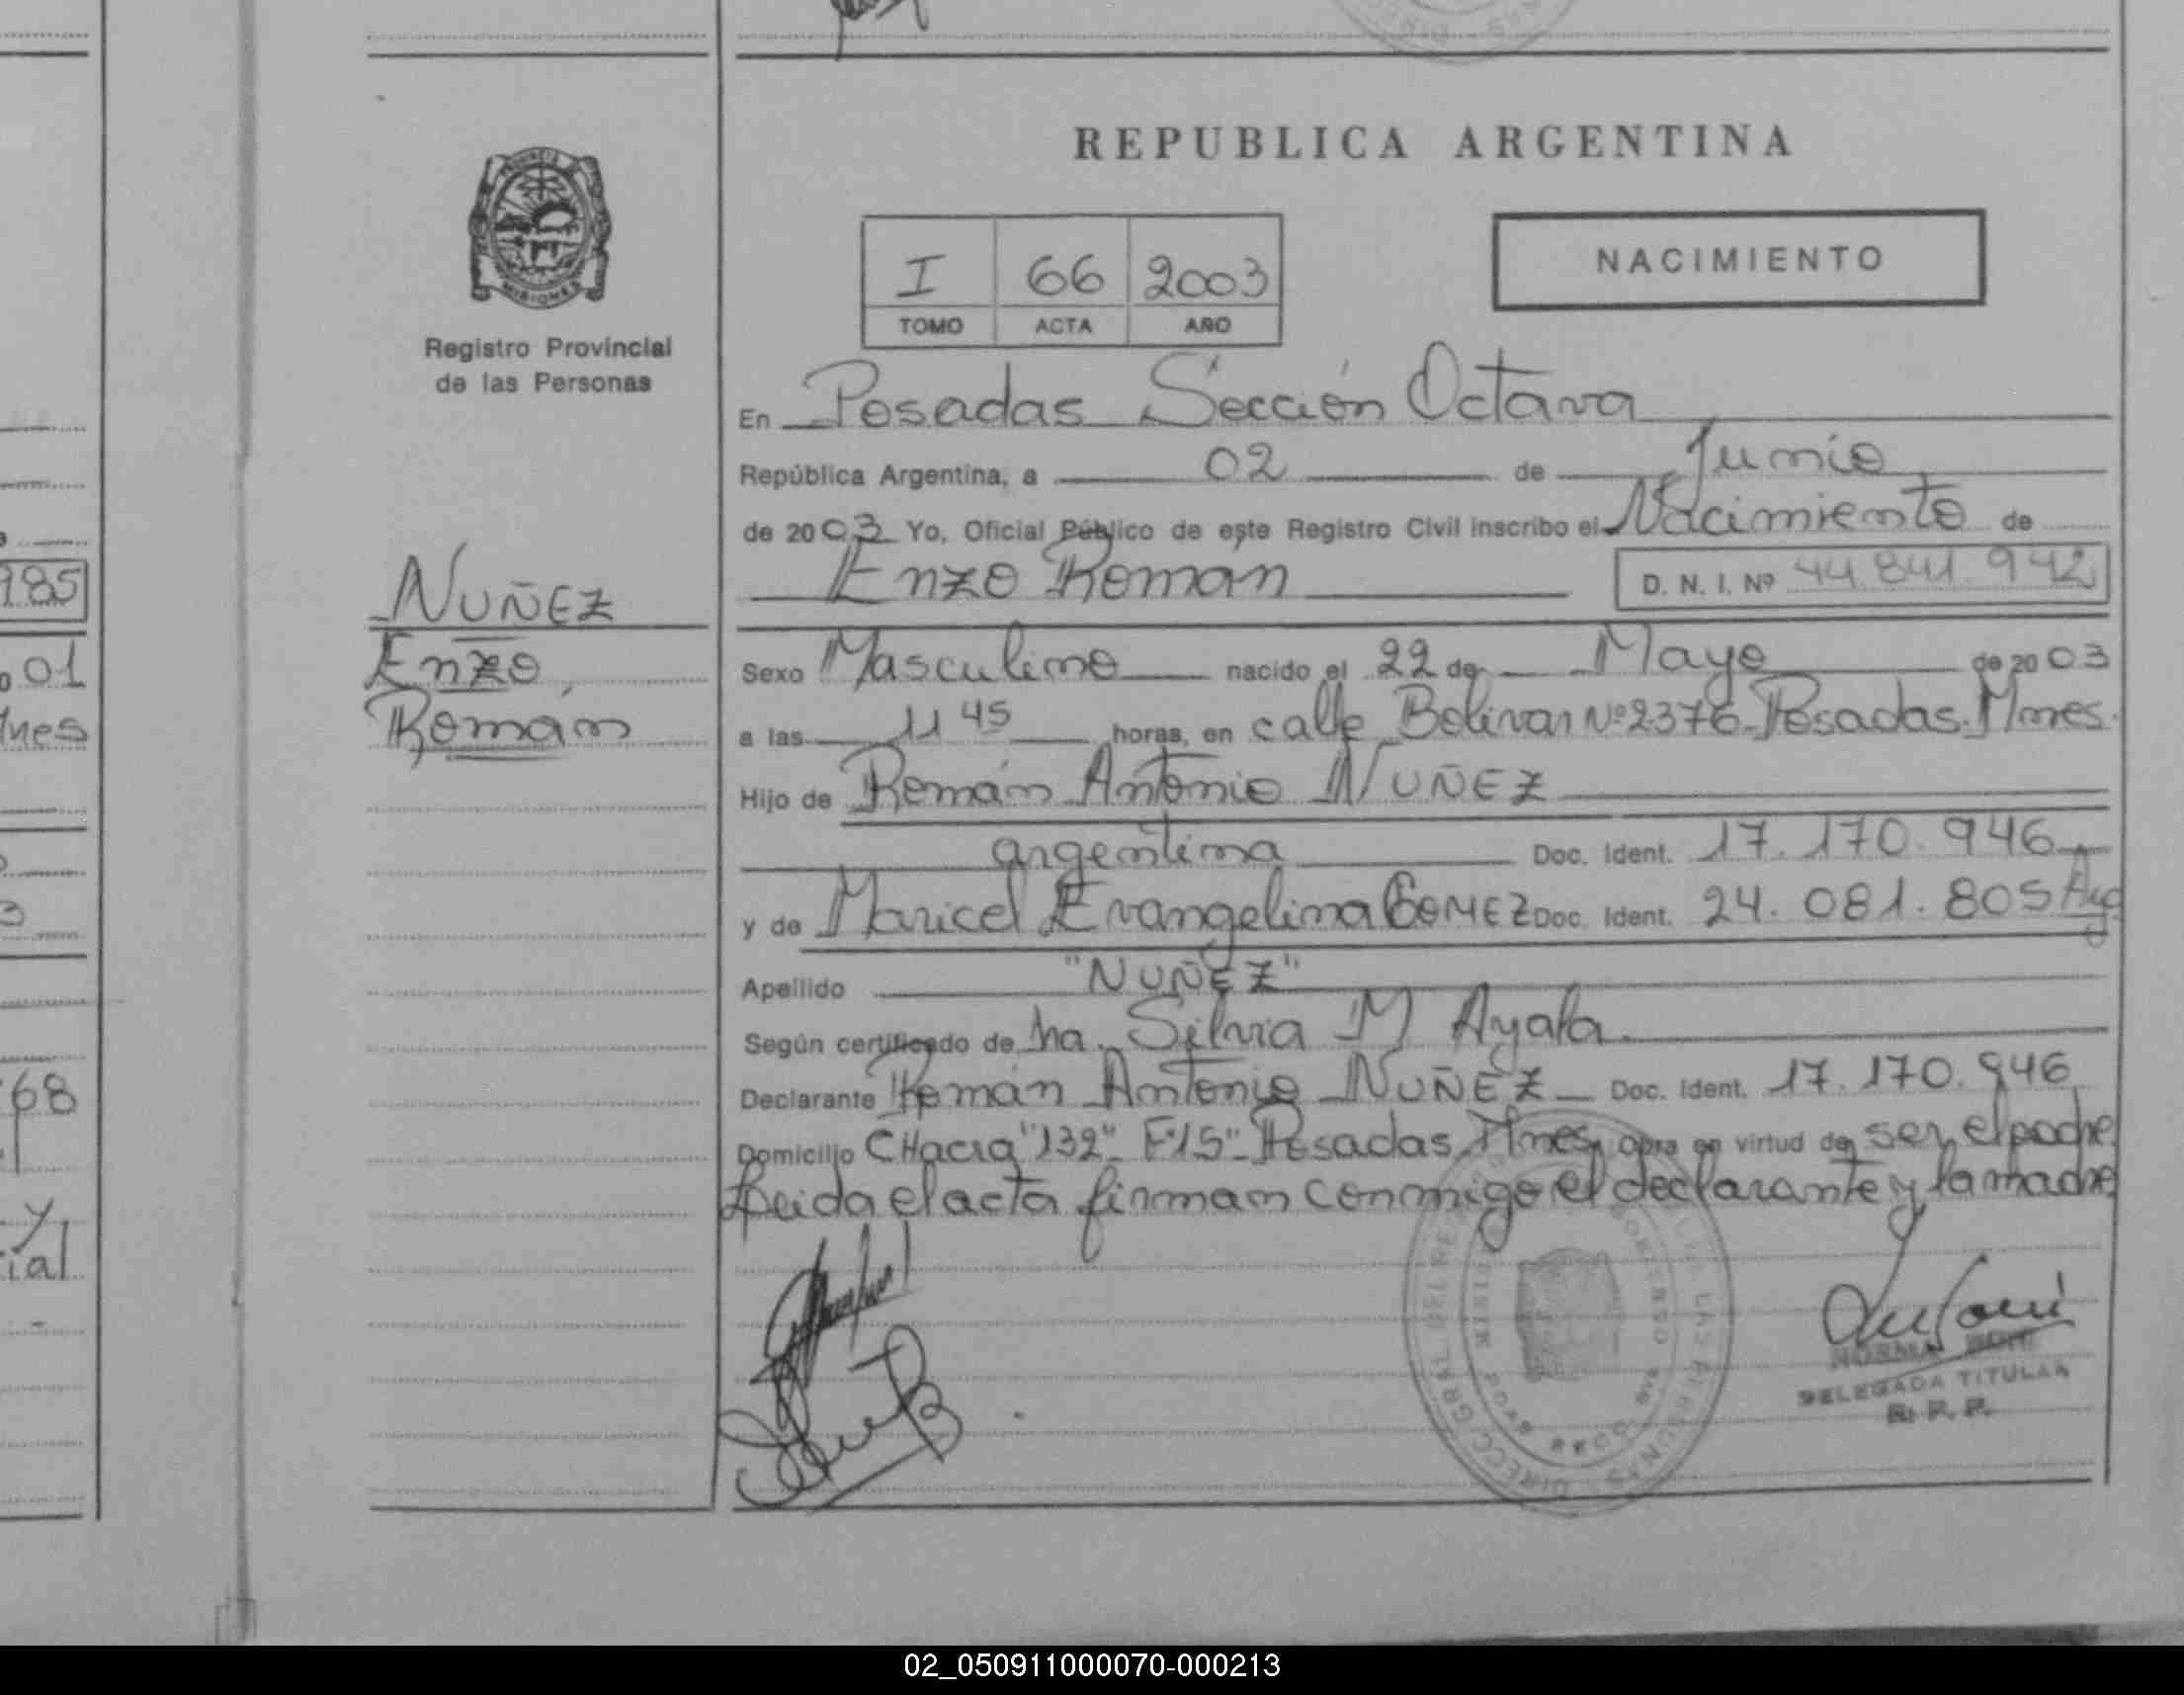 REPUBLICA ARGENTINA
PROVINCIA
MISIONES
Registro Provincial
de las Personas
I 66 2003
TOMO ACTA AÑO
NACIMIENTO
En Posadas Sección Octava
República Argentina, a 02 de Junio
de 2003 Yo, Oficial Público de este Registro Civil inscribo el Nacimiento de
Enzo Roman D. N. I. Nº 44.841.942
NUÑEZ
Enzo,
Román
Sexo Masculino nacido el 22 de Mayo de 2003
a las 11 45 horas, en calle Bolivar Nº 2376-Posadas. Mnes.
Hijo de Román Antonio NUÑEZ
argentina Doc. Ident. 17.170.946
y de Maricel Evangelina GOMEZ Doc. Ident. 24.081.805 Arg
Apellido "NUÑEZ"
Según certificado de Silvia M Ayala
Declarante Román Antonio NUÑEZ Doc. Ident. 17.170.946
Domicilio CHacra "132"- Posadas, Mnes, obra en virtud de ser el padre
Leida el acta firman conmigo el declarante y la madre
NORMA
DELEGADA TITULAR
R. P. P.
985
01
Mnes
3
68
y
ial
02_050911000070-000213